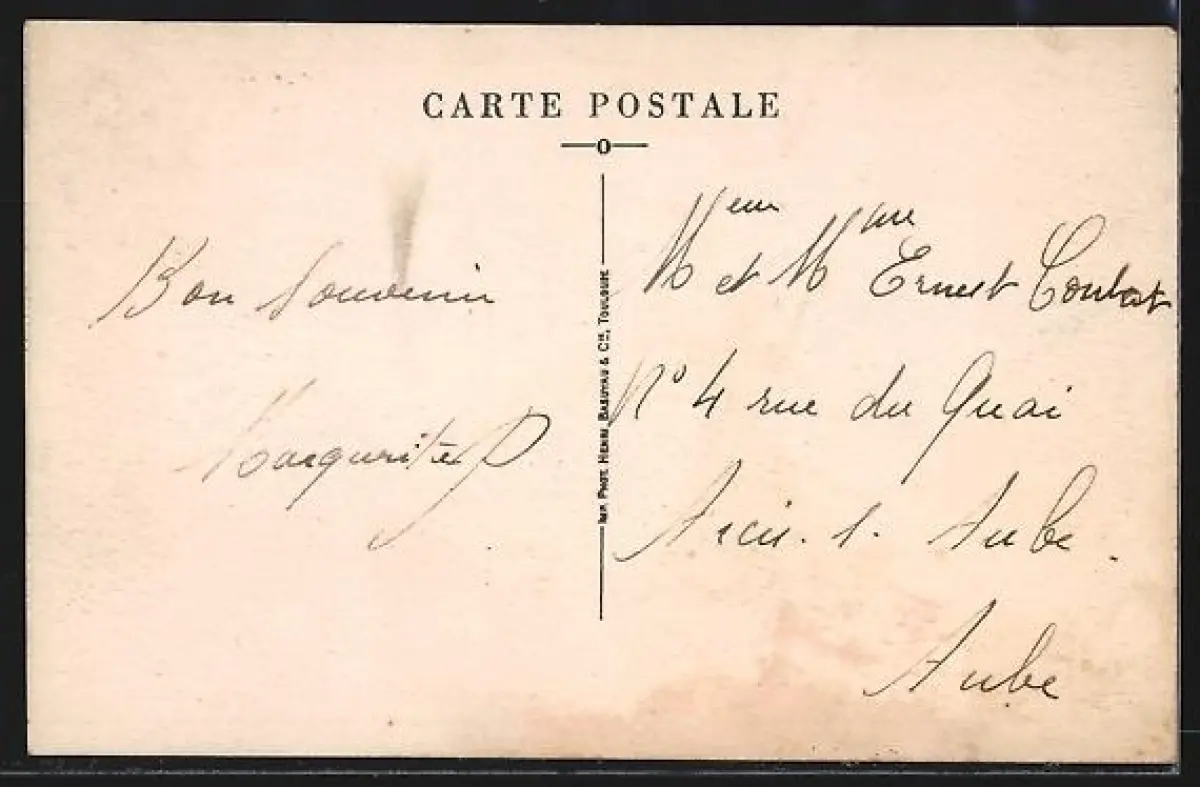 CARTE POSTALE
Bon souvenir
Marguerite P.
IMP. PHOT. HENRI BASUYAU & Cie, TOULOUSE
Meur et Mme Ernest
N° 4 rue du Quai
Arcis. s. Aube.
Aube